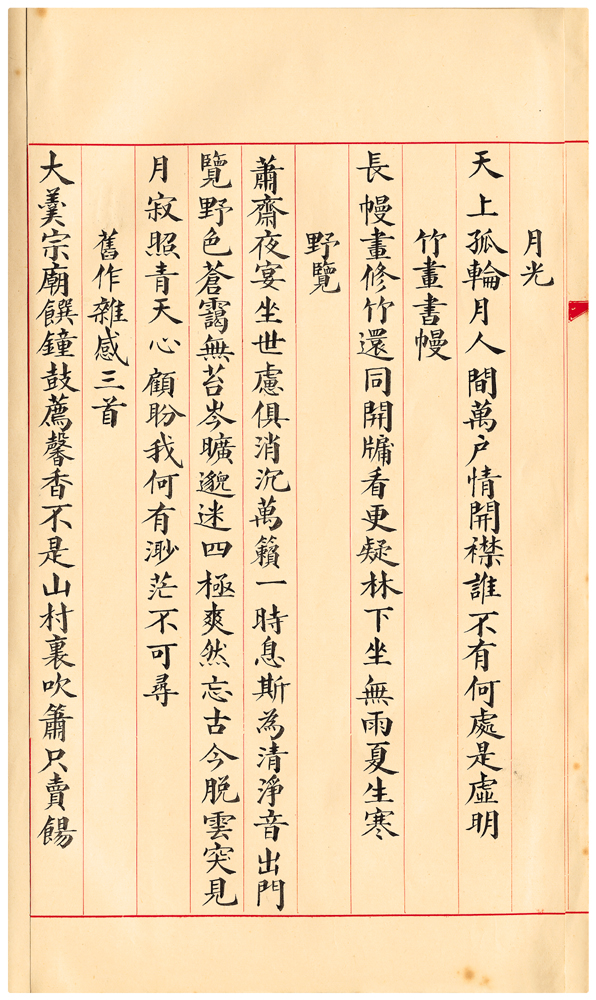 月光
天上孤輪月人間萬户情開襟誰不有何處是虛明
竹畫書幔
長幔畫修竹還同開牖看更疑林下坐無雨夏生寒
野覽
蕭齋夜宴坐世慮俱消沉萬籟一時息斯為清淨音出門
覽野色蒼靄無苔岑曠邈迷四極爽然忘古今脱雲突見
月寂照青天心顧盼我何有渺茫不可尋
舊作雜感三首
大羹宗廟饌鐘鼓薦馨香不是山村裏吹簫只賣餳